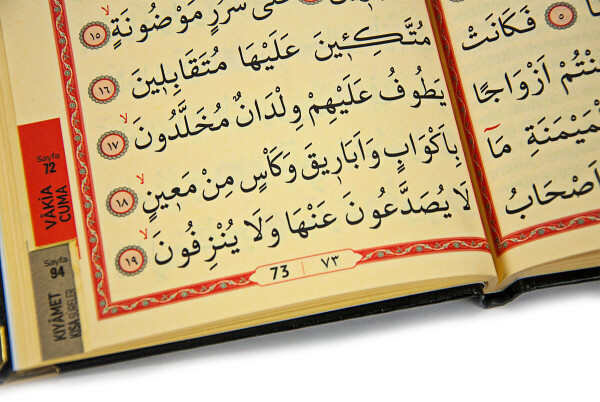 ٥ فَكَانَتْ
اَزْوَاجًا
مَٓا
اَصْحَابُ
عَلٰى سُرُرٍ مَوْضُونَةٍ ١٥
مُتَّكِـٖٔينَ عَلَيْهَا مُتَقَابِلٖينَ ١٦
يَطُوفُ عَلَيْهِمْ وِلْدَانٌ مُخَلَّدُونَ ١٧
بِاَكْوَابٍ وَاَبَارٖيقَ وَكَأْسٍ مِنْ مَعٖينٍ ١٨
لَا يُصَدَّعُونَ عَنْهَا وَلَا يُنْزِفُونَ ١٩
73 | ٧٣
Sayfa
72
VÂKİA
CUMA
Sayfa
94
KIYÂMET
KISA SURELER